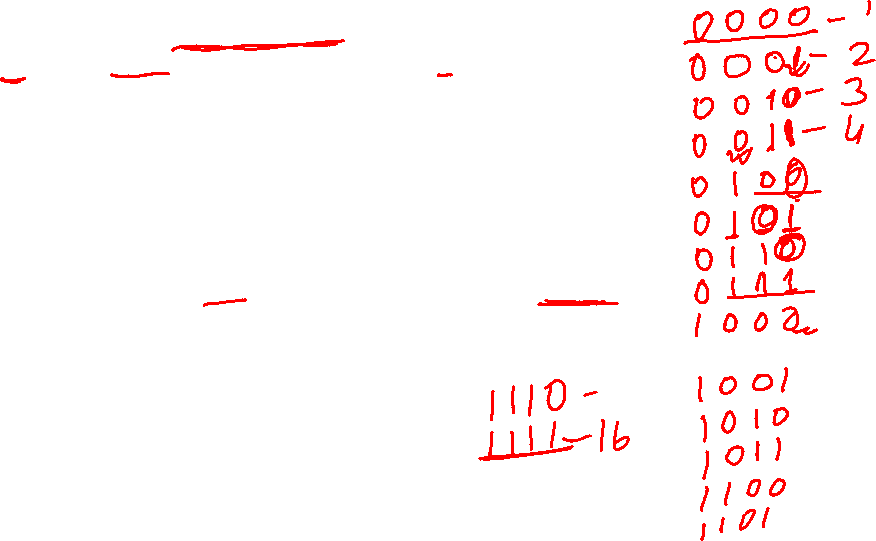 0000-1
0001-2
0010-3
0011-4
0100
0101
0110
0111
1000
1001
1010
1011
1100
1101
1110-
1111-16